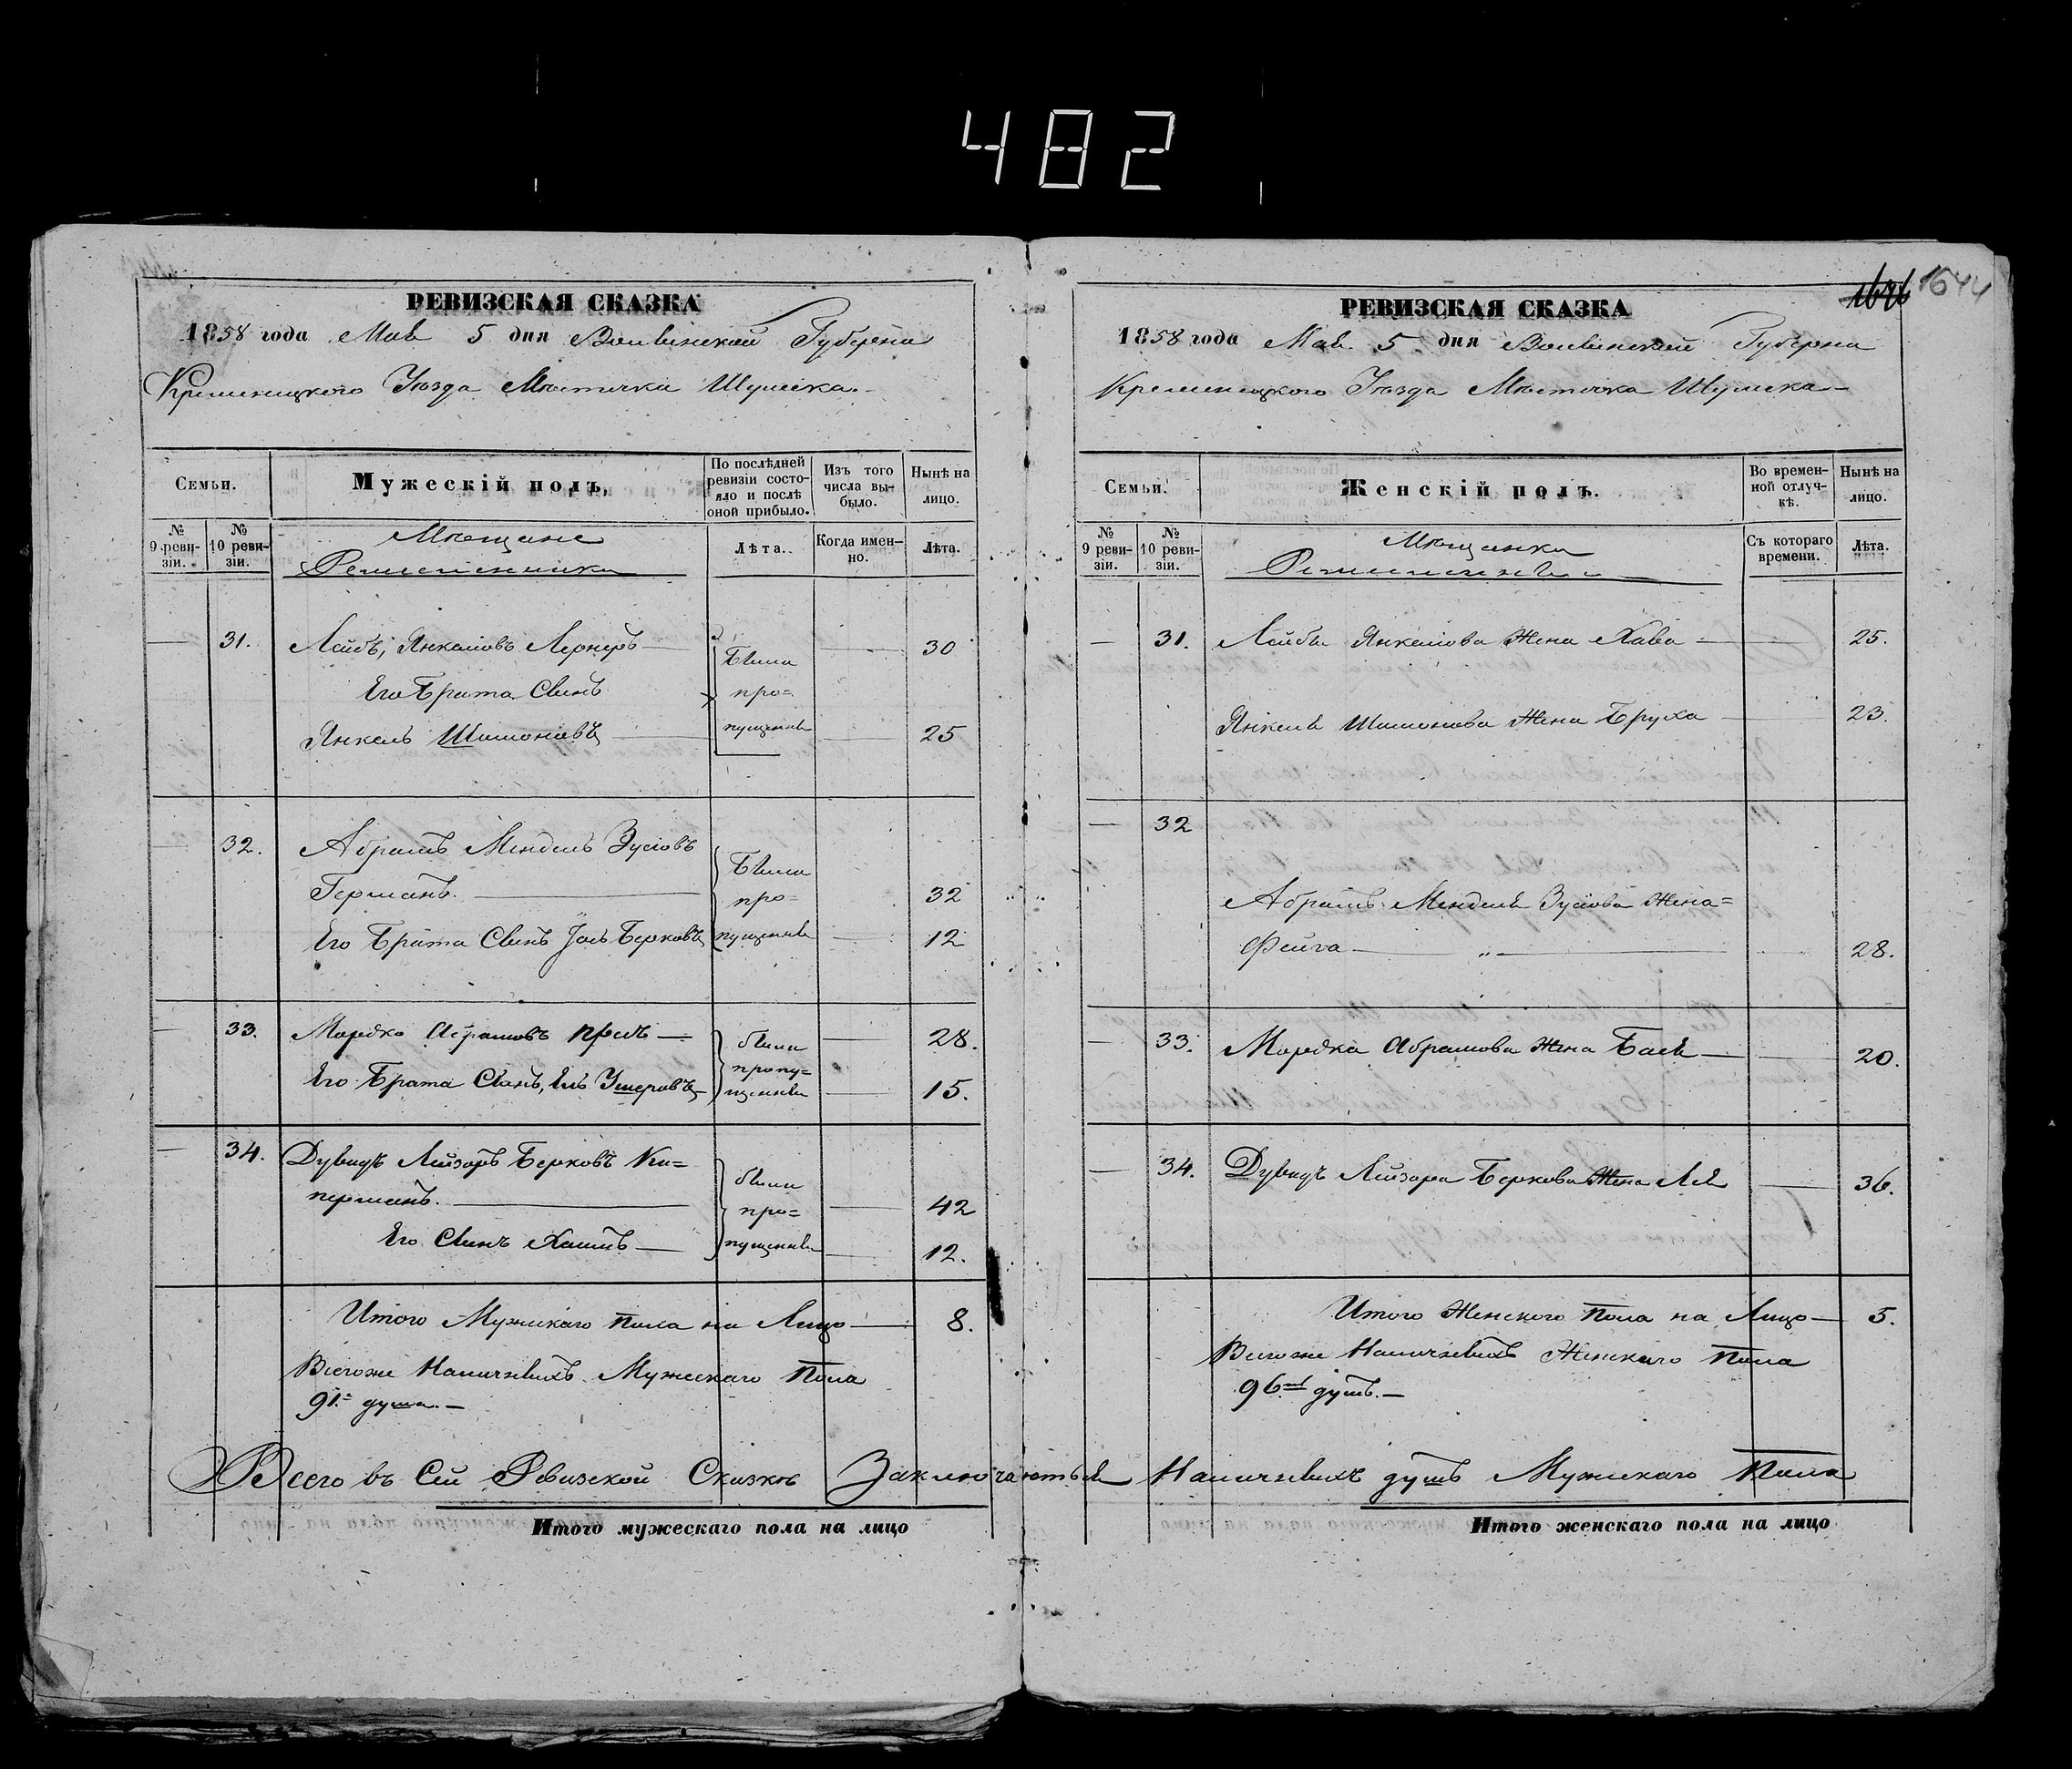 482
РЕВИЗСКАЯ СКАЗКА
1858 года Мая 5 дня Волынской Губерни
Кременецкого Уезда Местечка Шумска.
Семьи.
Мужескій полъ.
По послѣдней ревизіи состояло и послѣ оной прибыло.
Изъ того числа выбыло.
Нынѣ на лицо.
№ 9 ревизіи.
№ 10 ревизіи.
Мѣщане
Ремесленники
Лѣта.
Когда именно.
Лѣта.
— 31. Лейбъ, Янкелювъ Лернеръ — Были — 30
Его Брата Сынъ про=
Янкель Шимоновъ — пущены — 25
— 32. Абрамъ Мендель Зусювъ Были
Германъ. — про= 32
Его Брата Сынъ Берковъ пущены — 12
— 33. Мордко Абрамовъ — были — 28.
Его Брата Сынъ, Ушеровъ пропущены — 15.
— 34. Дувидъ Лейзоръ Берковъ Ки= были
перманъ. — про= — 42
Его Сынъ Хаимъ — пущены — 12.
Итого Мужскаго пола на Лицо — 8.
Всегоже Наличныхъ Мужескаго Пола
91. душа. —
Всего въ Сей Ревизской Сказке Заключаеться Наличныхъ душъ Мужскаго Пола
Итого мужескаго пола на лицо
1644
РЕВИЗСКАЯ СКАЗКА
1858 года Мая. 5 дня Волынской Губерни
Кременецкого Уезда Местечка Шумска —
Семьи.
Женскій полъ.
Во временной отлучкѣ.
Нынѣ на лицо.
№ 9 ревизіи.
№ 10 ревизіи.
Мѣщанки
Съ котораго времени.
Лѣта.
— 31. Лейбы Янкелюва Жена Хава — 25.
Янкеля Шимонова Жена Бруха — 23.
— 32
Абрамъ Менделя Зусюва Жена=
Фейга — „ — 28.
— 33. Мордка Абрамова Жена Бася — 20.
— 34. Дувидъ Лейзора Беркова Жена Лея — 36.
Итого Женского Пола на Лицо — 5.
Всегоже Наличныхъ Женскаго Пола
96 душъ. —
Итого женскаго пола на лицо